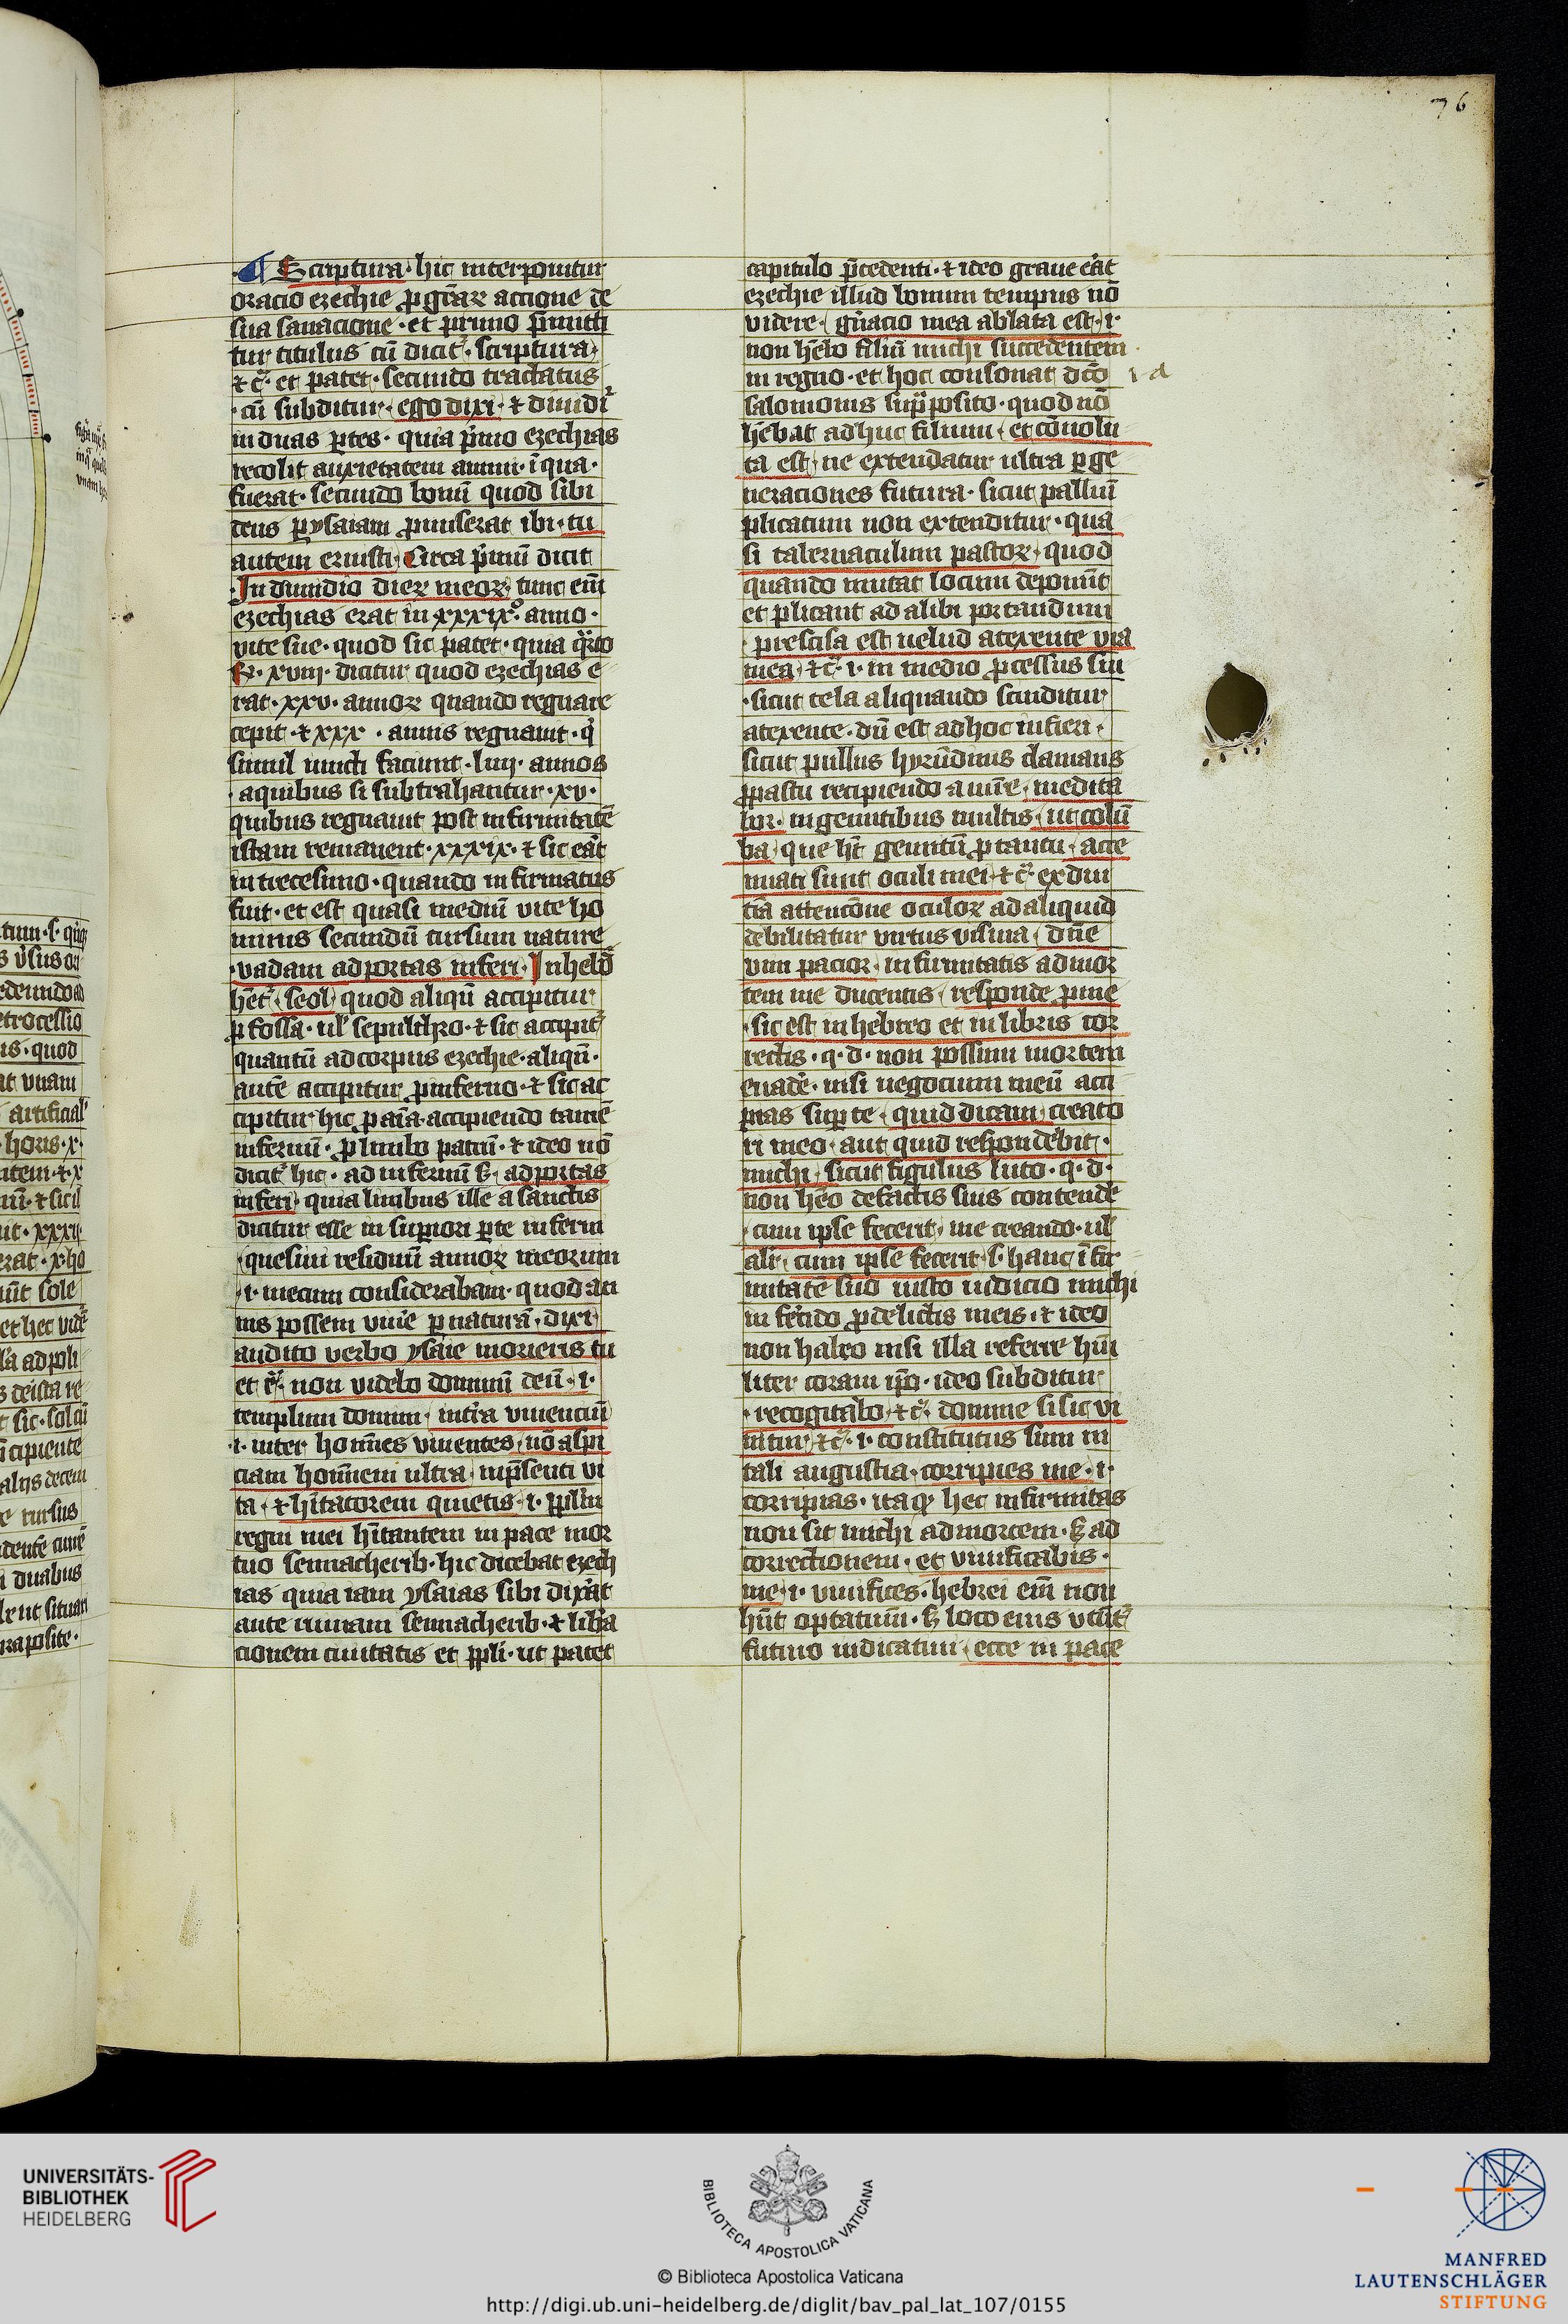 76
¶ Scriptura· hic interponitur
oracio ezechie ꝓ gr̄aꝝ accione de
sua sanacione · et primo p̄mitti
tur titulus cū dicit᷑ · scriptura
⁊ c̄ · et patet · secundo tractatus
· cū subditur · ego dixi · ⁊ diuidi᷑
in duas ꝑtes · quia p̄mo ezechias
recolit anxietatem animi · ī qua ·
fuerat · secundo bonū quod sibi
deus ꝑ ysaiam ꝓmiserat ibi · tu
autem eruisti · Circa p̄mū dicit
· In dimidio dieꝝ meoꝝ · tunc em̄
ezechias erat in xxxix° · anno ·
vite sue · quod sic patet · quia q̄rto
R · xviii · dicitur quod ezechias e
rat · xxv · annoꝝ quando regnare
cepit · ⁊ xxx · annis regnauit · q̄
simul iuncti faciunt · liiij · annos
· a quibus si subtrahantur · xv ·
quibus regnauit post infirmitatē
istam remanent · xxxix · ⁊ sic erat
in trecesimo · quando infirmatus
fuit · et est quasi mediū vite ho
minis secundū cursum nature
· vadam ad portas inferi · In hebr̄o
hēt᷑ · seol · quod aliqn̄ accipitur
ꝑ fossa · ul̕ sepulchro · ⁊ sic accipit᷑
quantū ad corpus ezechie · aliqn̄ ·
autē accipitur ꝓ inferno · ⁊ sic ac
cipitur hic ꝓ aīa · accipiendo tamē
infernū · ꝓ limbo patrū · ⁊ ideo nō
dicit᷑ hic · ad infernū s̄ · ad portas
inferi · quia limbus ille a sanctis
dicitur esse in suꝑiori ꝑte inferni
· quesiui residuū annoꝝ meorum
· i · mecum considerabam · quod an
nis possem viu̕e ꝑ naturā · dixi ·
audito verbo ysaie morieris tu
et c̄ · non videbo dominū deū · i ·
templum domini · in tr̄a viuenciū
· i · inter hoīnes viuentes · nō aspi
ciam hoīnem ultra · in p̄senti vi
ta · ⁊ hītatorem quietis · i · ppl̄m
regni mei hītantem in pace mor
tuo sennacherib · hic dicebat ezech
ias quia iam ysaias sibi dixerat
ante ruinam sennacherib · ⁊ libera
cionem ciuitatis et ppl̄i · ut patet
capitulo p̄cedenti · ⁊ ideo graue erat
ezechie illud bonum tempus nō
videre · gn̄acio mea ablata est · i ·
non hēbo filiū michi succedentem
in regno · et hoc consonat dc̄o
salomonis sup̄posito · quod nō
hēbat ad huc filium · et cōuolu
ta est · ne extendatur ultra ꝑ ge
neraciones futura · sicut palliū
plicatum non extenditur · qua
si tabernaculum pastoꝝ · quod
quando mutat locum deponūt
et plicant ad alibi portandum
· prescisa est uelud a texente vita
mea · ⁊ c̄ · i · in medio ꝓcessus sui
· sicut tela aliquando scinditur
a texente · dū est ad hoc in fieri ·
sicut pullus hyrūdinis clamans
ꝓ pastu recipiendo a mr̄e · medita
bor · in gemitibus multis · ut colū
ba · que h̄t gemitū ꝓ cantu · atte
nuati sunt oculi mei · ⁊ c̄ · ex diu
tīa attencōne oculoꝝ ad aliquid
debilitatur virtus visiua · dn̄e
vim pacior · infirmitatis ad mor
tem me ducentis · responde ꝓ me
· sic est in hebreo et in libris cor
rectis · q · d · non possum mortem
euade̕ · nisi negocium meū acci
pias suꝑ te · quid dicam · creato
ri meo · aut quid respondebit ·
michi · sicut figulus luto · q · d ·
non hēo de factis suis contende̕
· cum ipse fecerit · me creando · ul̕
ali̕ · cum ipse fecerit · s · hanc ī fir
mitatē suo iusto iudicio michi
in ferēdo ꝓ delictis meis · ⁊ ideo
non habeo nisi illa referre hūi
liter coram ip̄o · ideo subditur
· recogitabo · ⁊ c̄ · domine si sic vi
uitur · ⁊ c̄ · i · constitutus sum in
tali angustia · corripies me · i ·
corripias · ita qꝫ hec infirmitas
non sit michi ad mortem · s̄ ad
correctionem · et viuificabis ·
me · i · viuifices · hebrei em̄ non
hn̄t optatiuū · s̄ loco eius vtūt᷑
futuro indicatiui · ecce in pace
UNIVERSITÄTS-
BIBLIOTHEK
HEIDELBERG
BIBLIOTECA APOSTOLICA VATICANA
© Biblioteca Apostolica Vaticana
http://digi.ub.uni-heidelberg.de/diglit/bav_pal_lat_107/0155
MANFRED
LAUTENSCHLÄGER
STIFTUNG